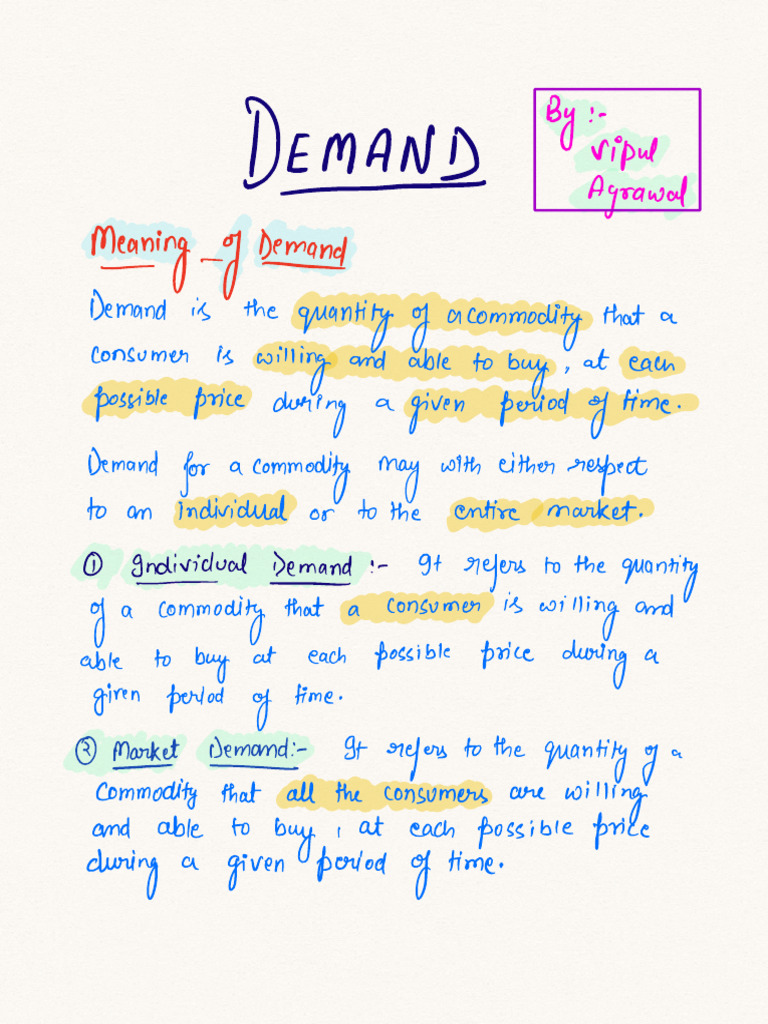 DEMAND
By :-
Vipul
Agrawal
Meaning of Demand
Demand is the quantity of a commodity that a
consumer is willing and able to buy, at each
possible price during a given period of time.
Demand for a commodity may with either respect
to an individual or to the entire market.
① Individual Demand :- It refers to the quantity
of a commodity that a consumer is willing and
able to buy at each possible price during a
given period of time.
② Market Demand:- It refers to the quantity of a
commodity that all the consumers are willing
and able to buy, at each possible price
during a given period of time.